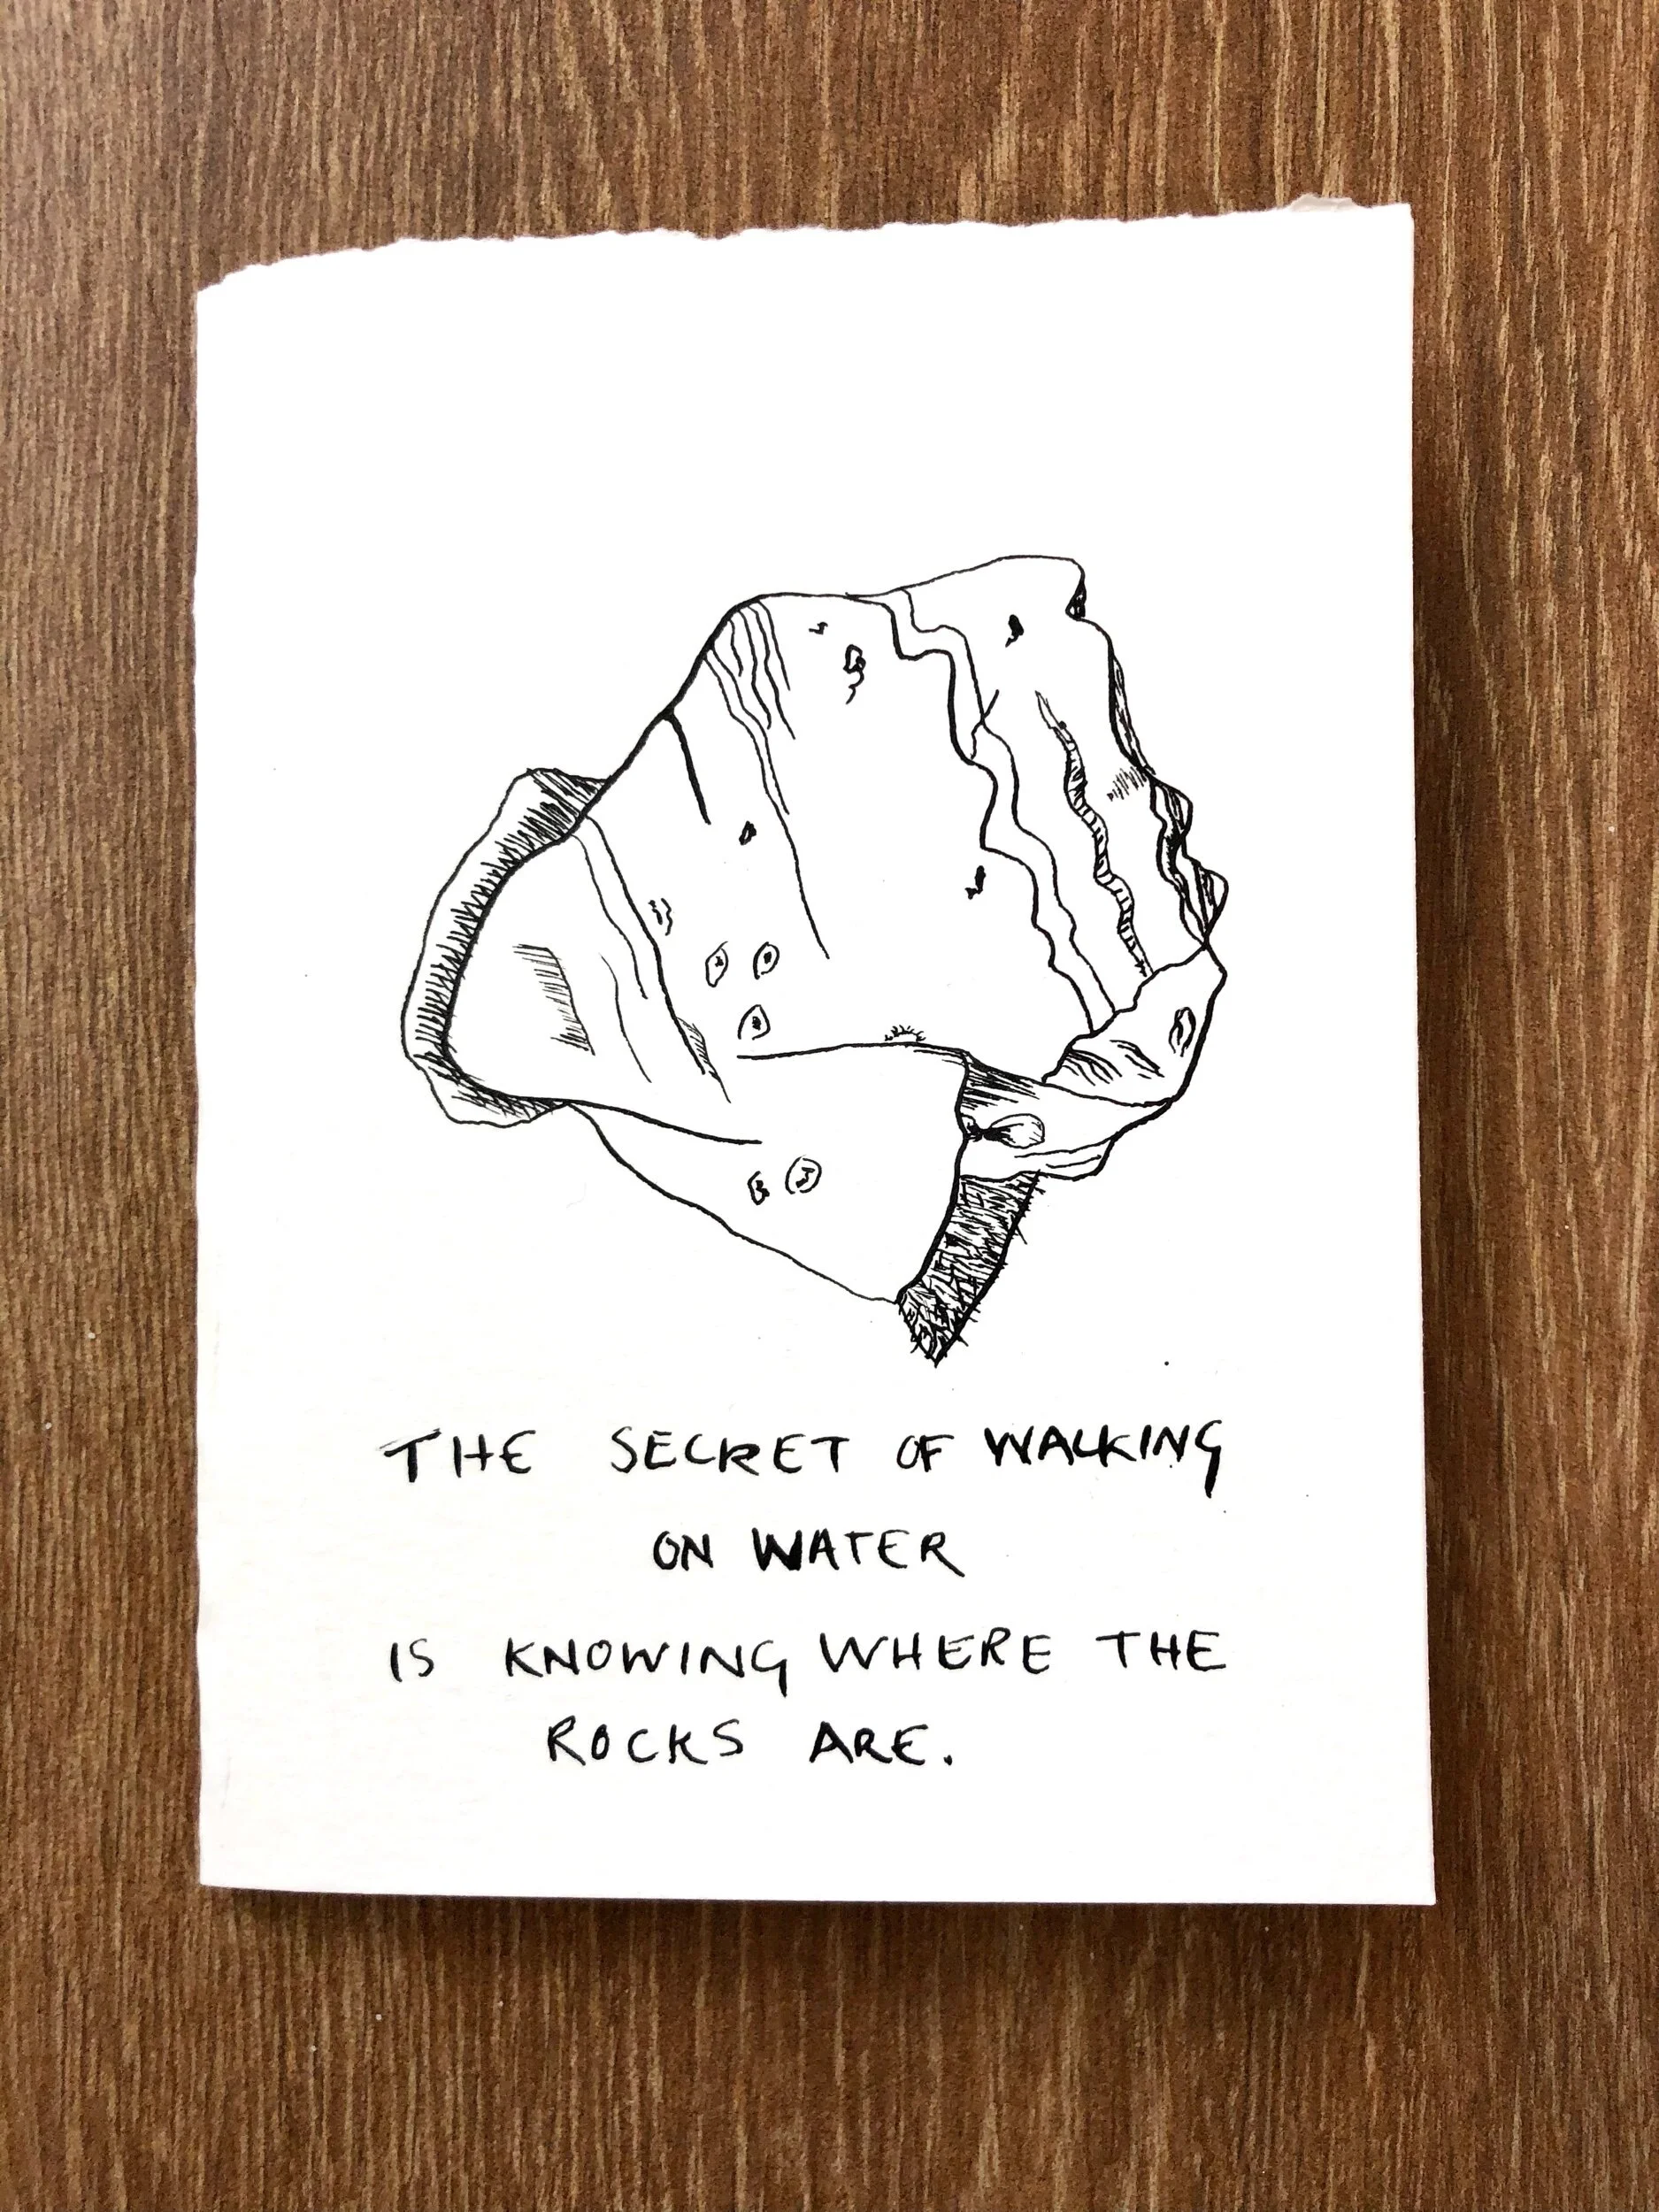 THE SECRET OF WALKING
ON WATER
IS KNOWING WHERE THE
ROCKS ARE.